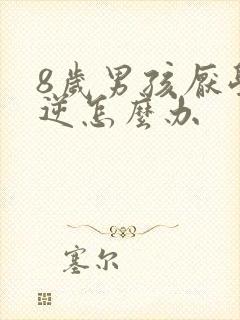 8歲男孩厭學
逆怎麼办
塞尔